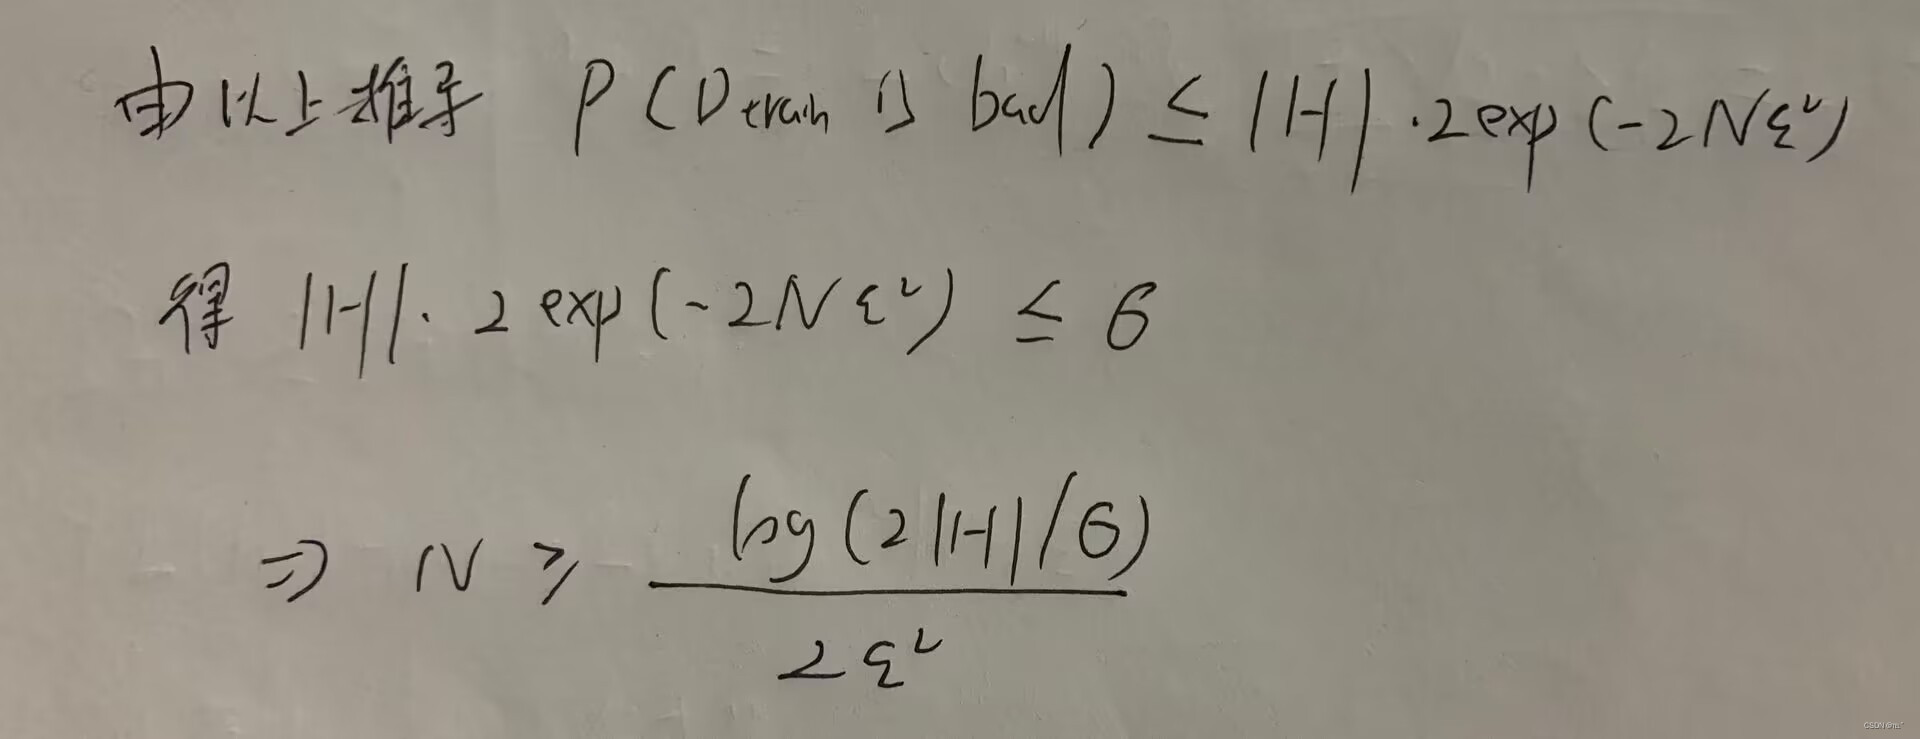 由以上推导 P(Dtrain is bad) ≤ |H|·2exp(-2Nε²)
得 |H|·2exp(-2Nε²) ≤ 6
⇒ N ≥ log(2|H|/6) / 2ε²